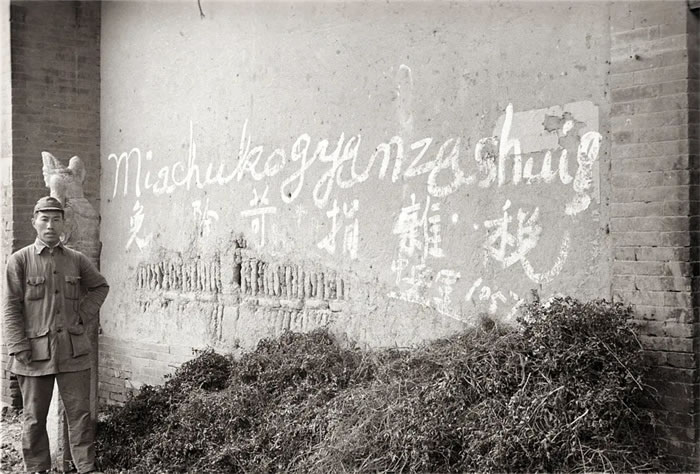 Miachukogyanzashuig
免除苛捐雜稅